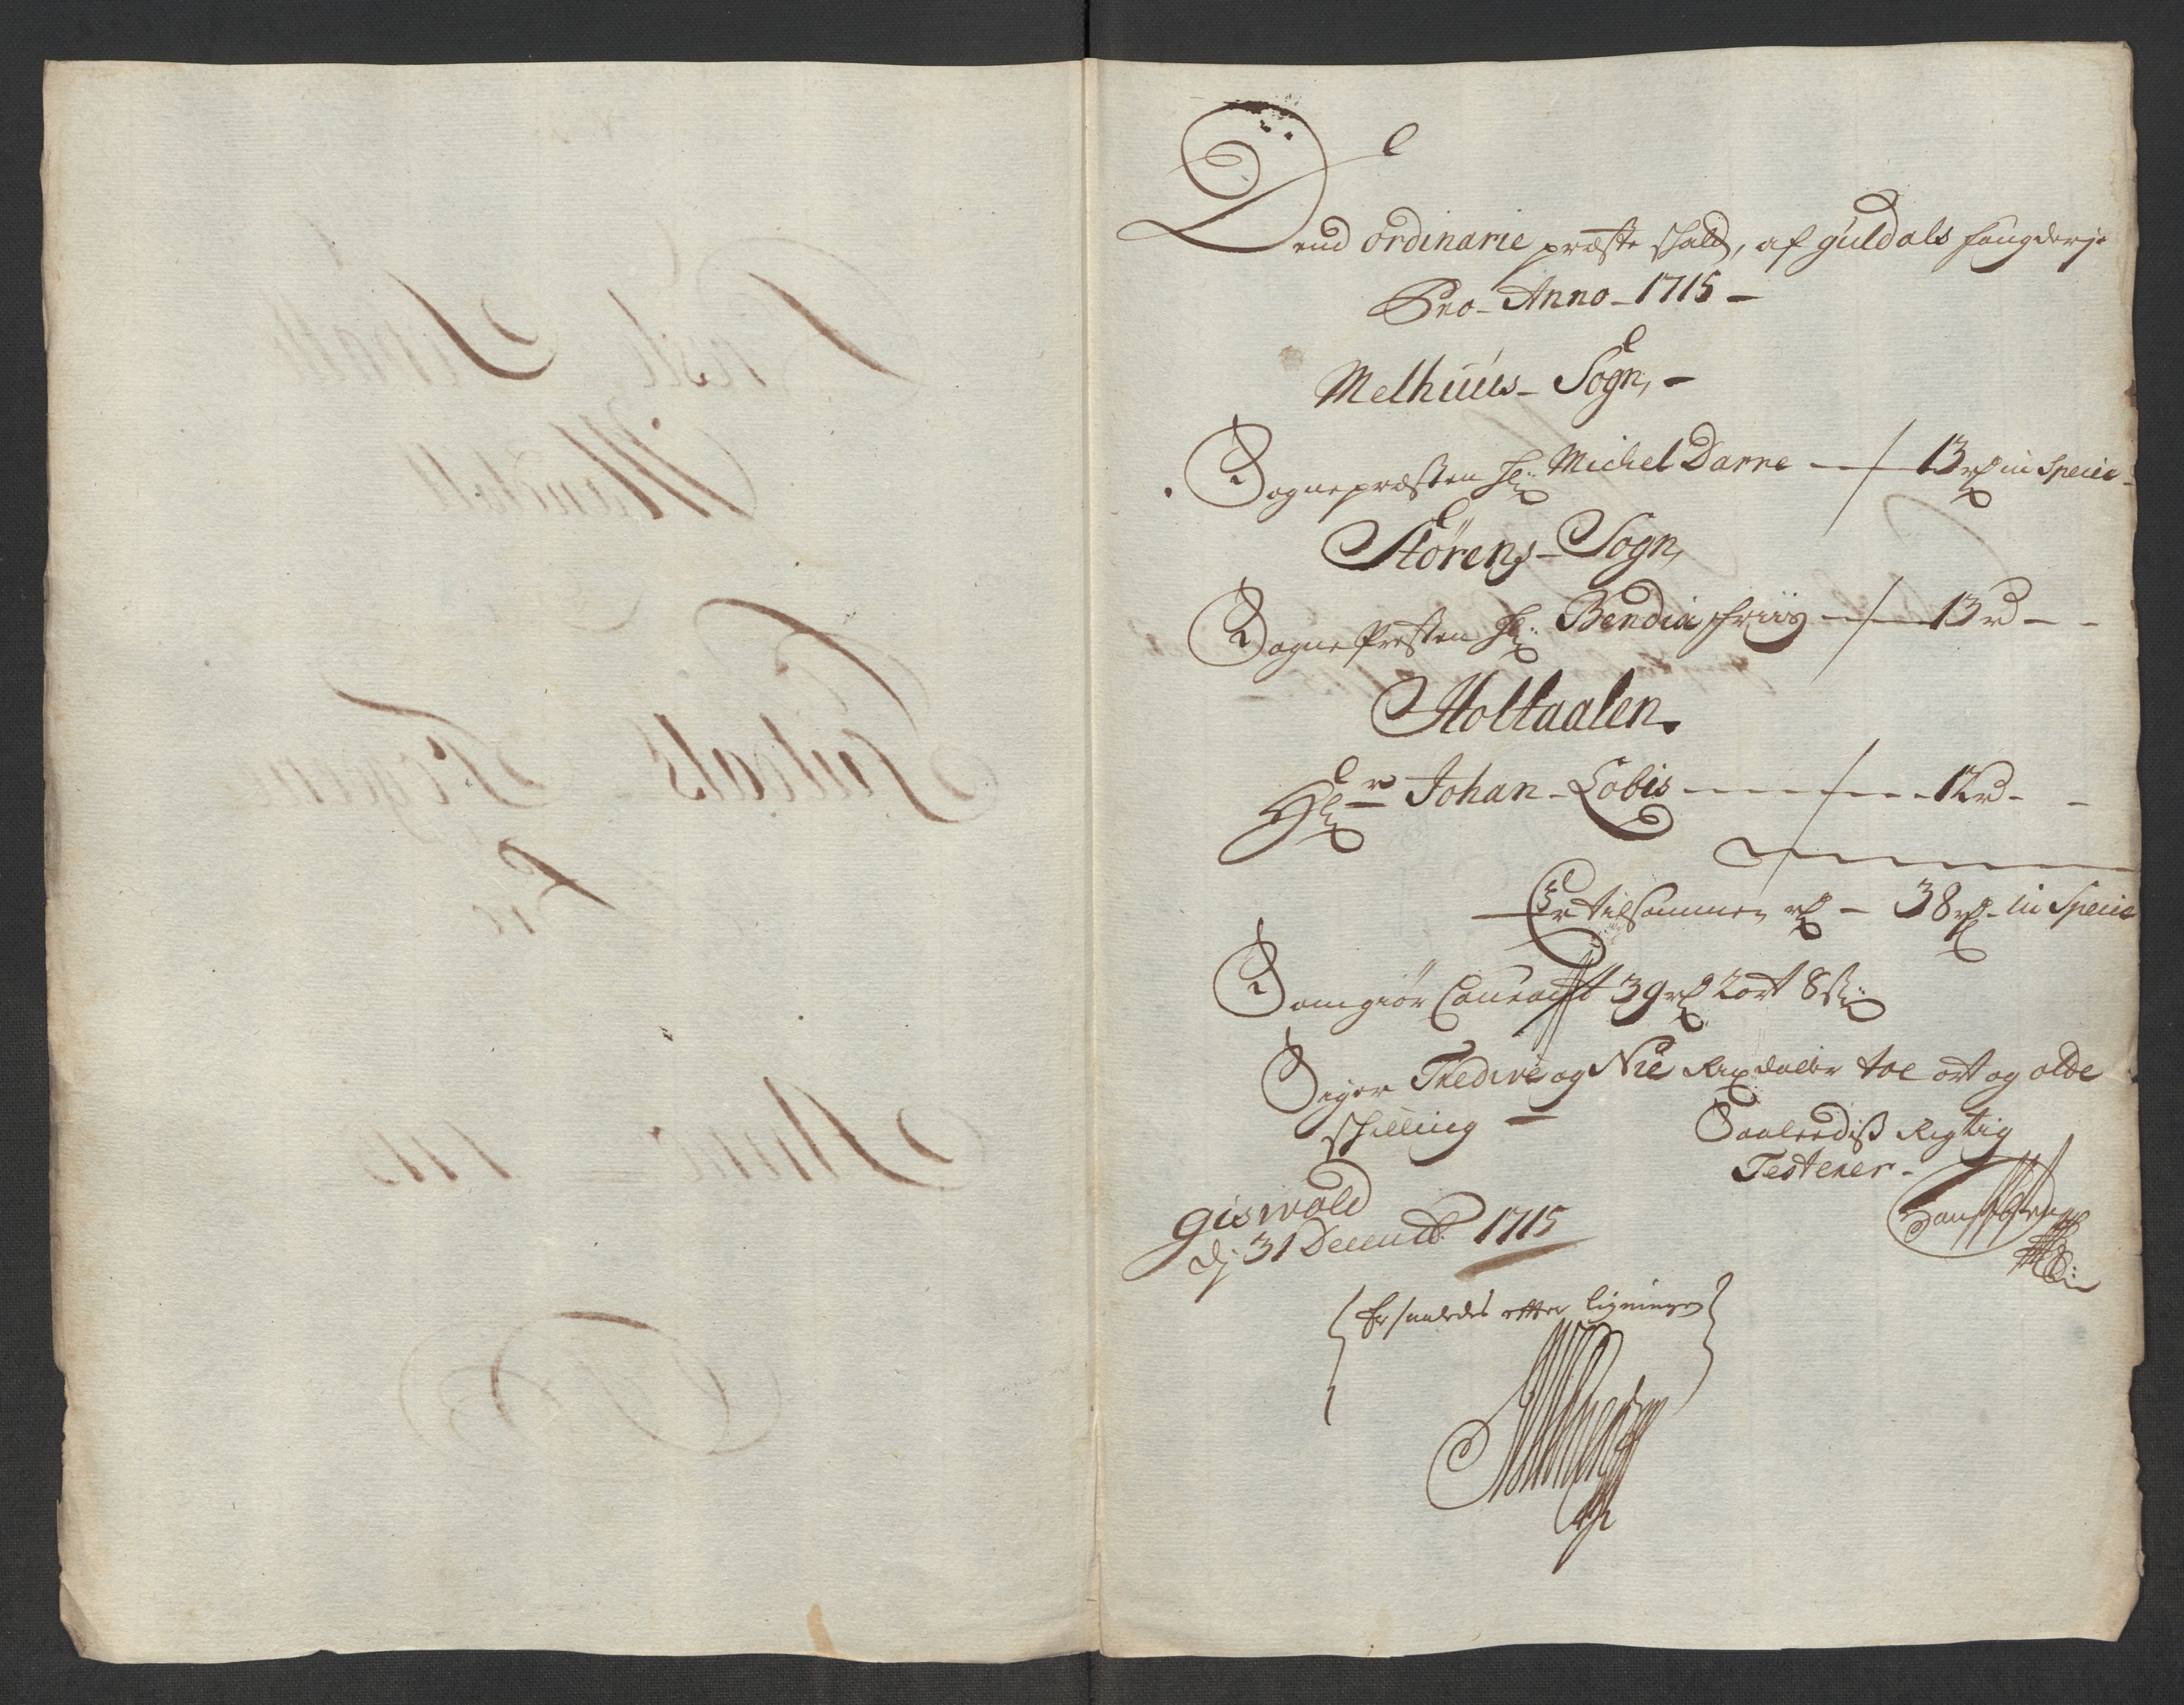 Dend ordinarie præste schatt, af Guldals fougderje
Pro Anno 1715
Melhuus Sogn,
Sognepræsten Hr: Michel Darre 13 rd in Specie
Størens Sogn,
Sognepresten Hr: Bendix Friis 13 rd
Holtaalen.
Hr Johan Lobis 12 rd
Er tilsammen rd 38 rd in Specie
Som giør Courant 39 rd 2 ort 8 s:
Siger Tredive og Nie Rixdaler toe ort og otte
schilling
Saaledis Rigtig
Testerer
Giswold
dj 31 Decemb: 1715
Er saaledes efter ligningen